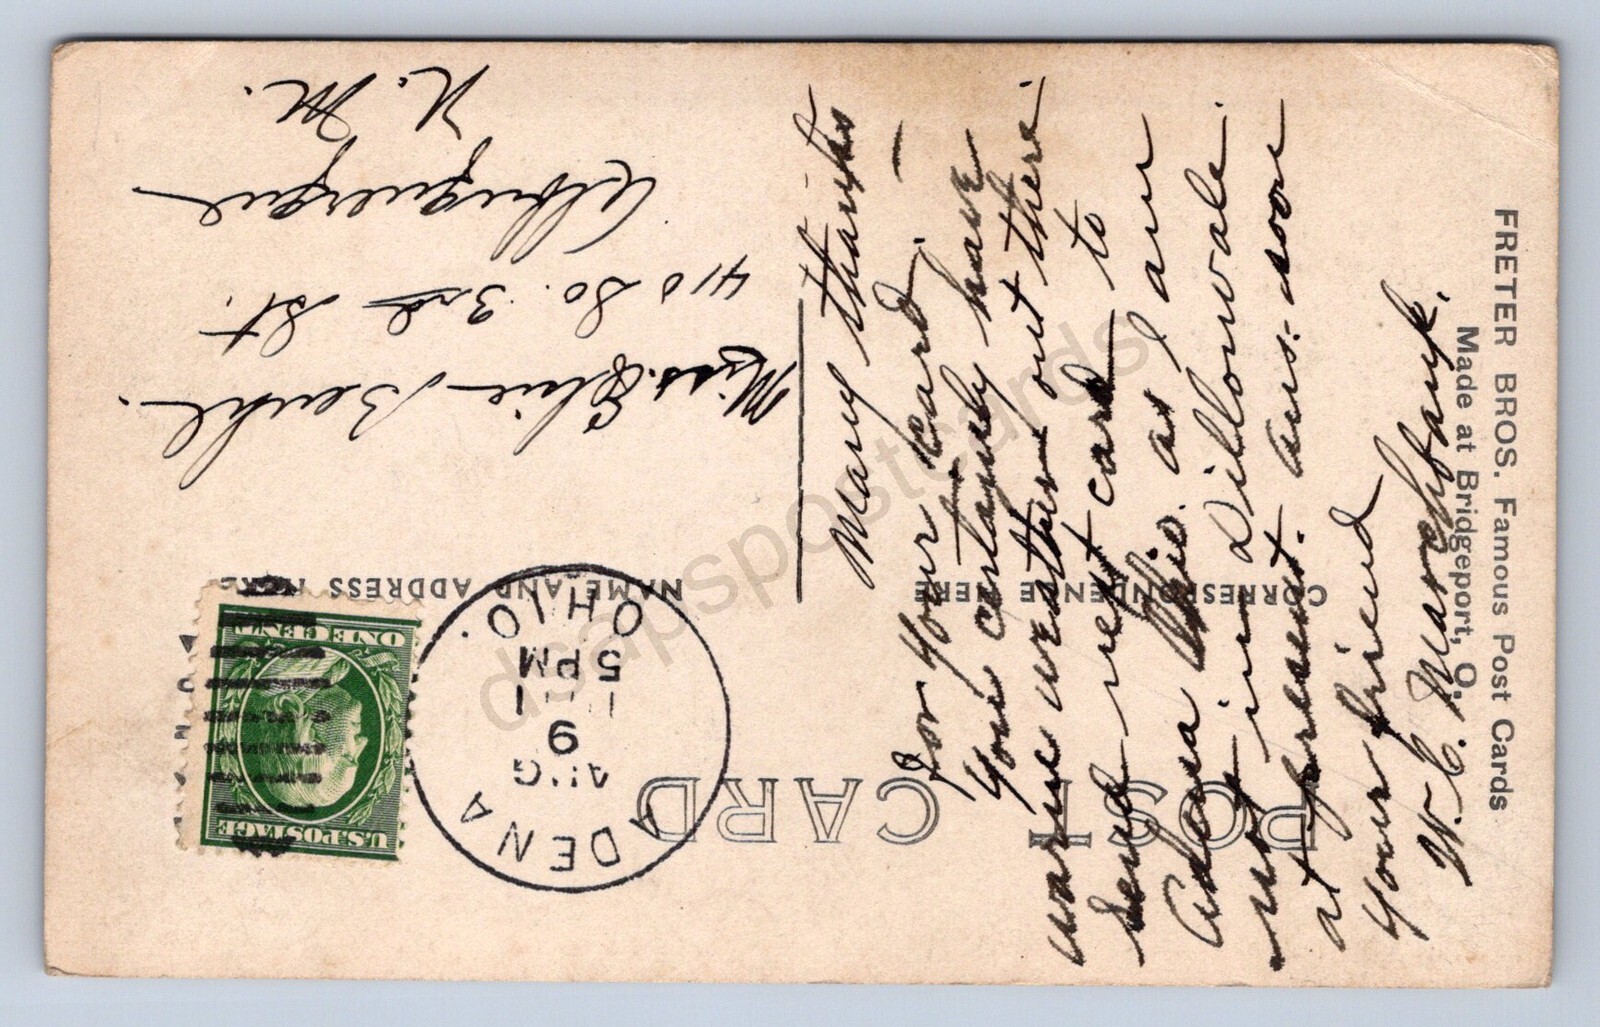 FRETER BROS. Famous Post Cards
Made at Bridgeport, O.
POST CARD
CORRESPONDENCE HERE
NAME AND ADDRESS HERE
U.S. POSTAGE
ONE CENT
ADENA
AUG
9
1
5 PM
OHIO.
Many thanks
for your card. —
you certainly have
warm weather out there.
Send next card to
Adena Ohio. as I am
not in Dillonvale.
at present. ans. soon
your friend
W. C. Marchbank.
Miss. Elsie Beuhl.
410 So. 3rd St.
Albuquerque
N. M.
dsapspostcards